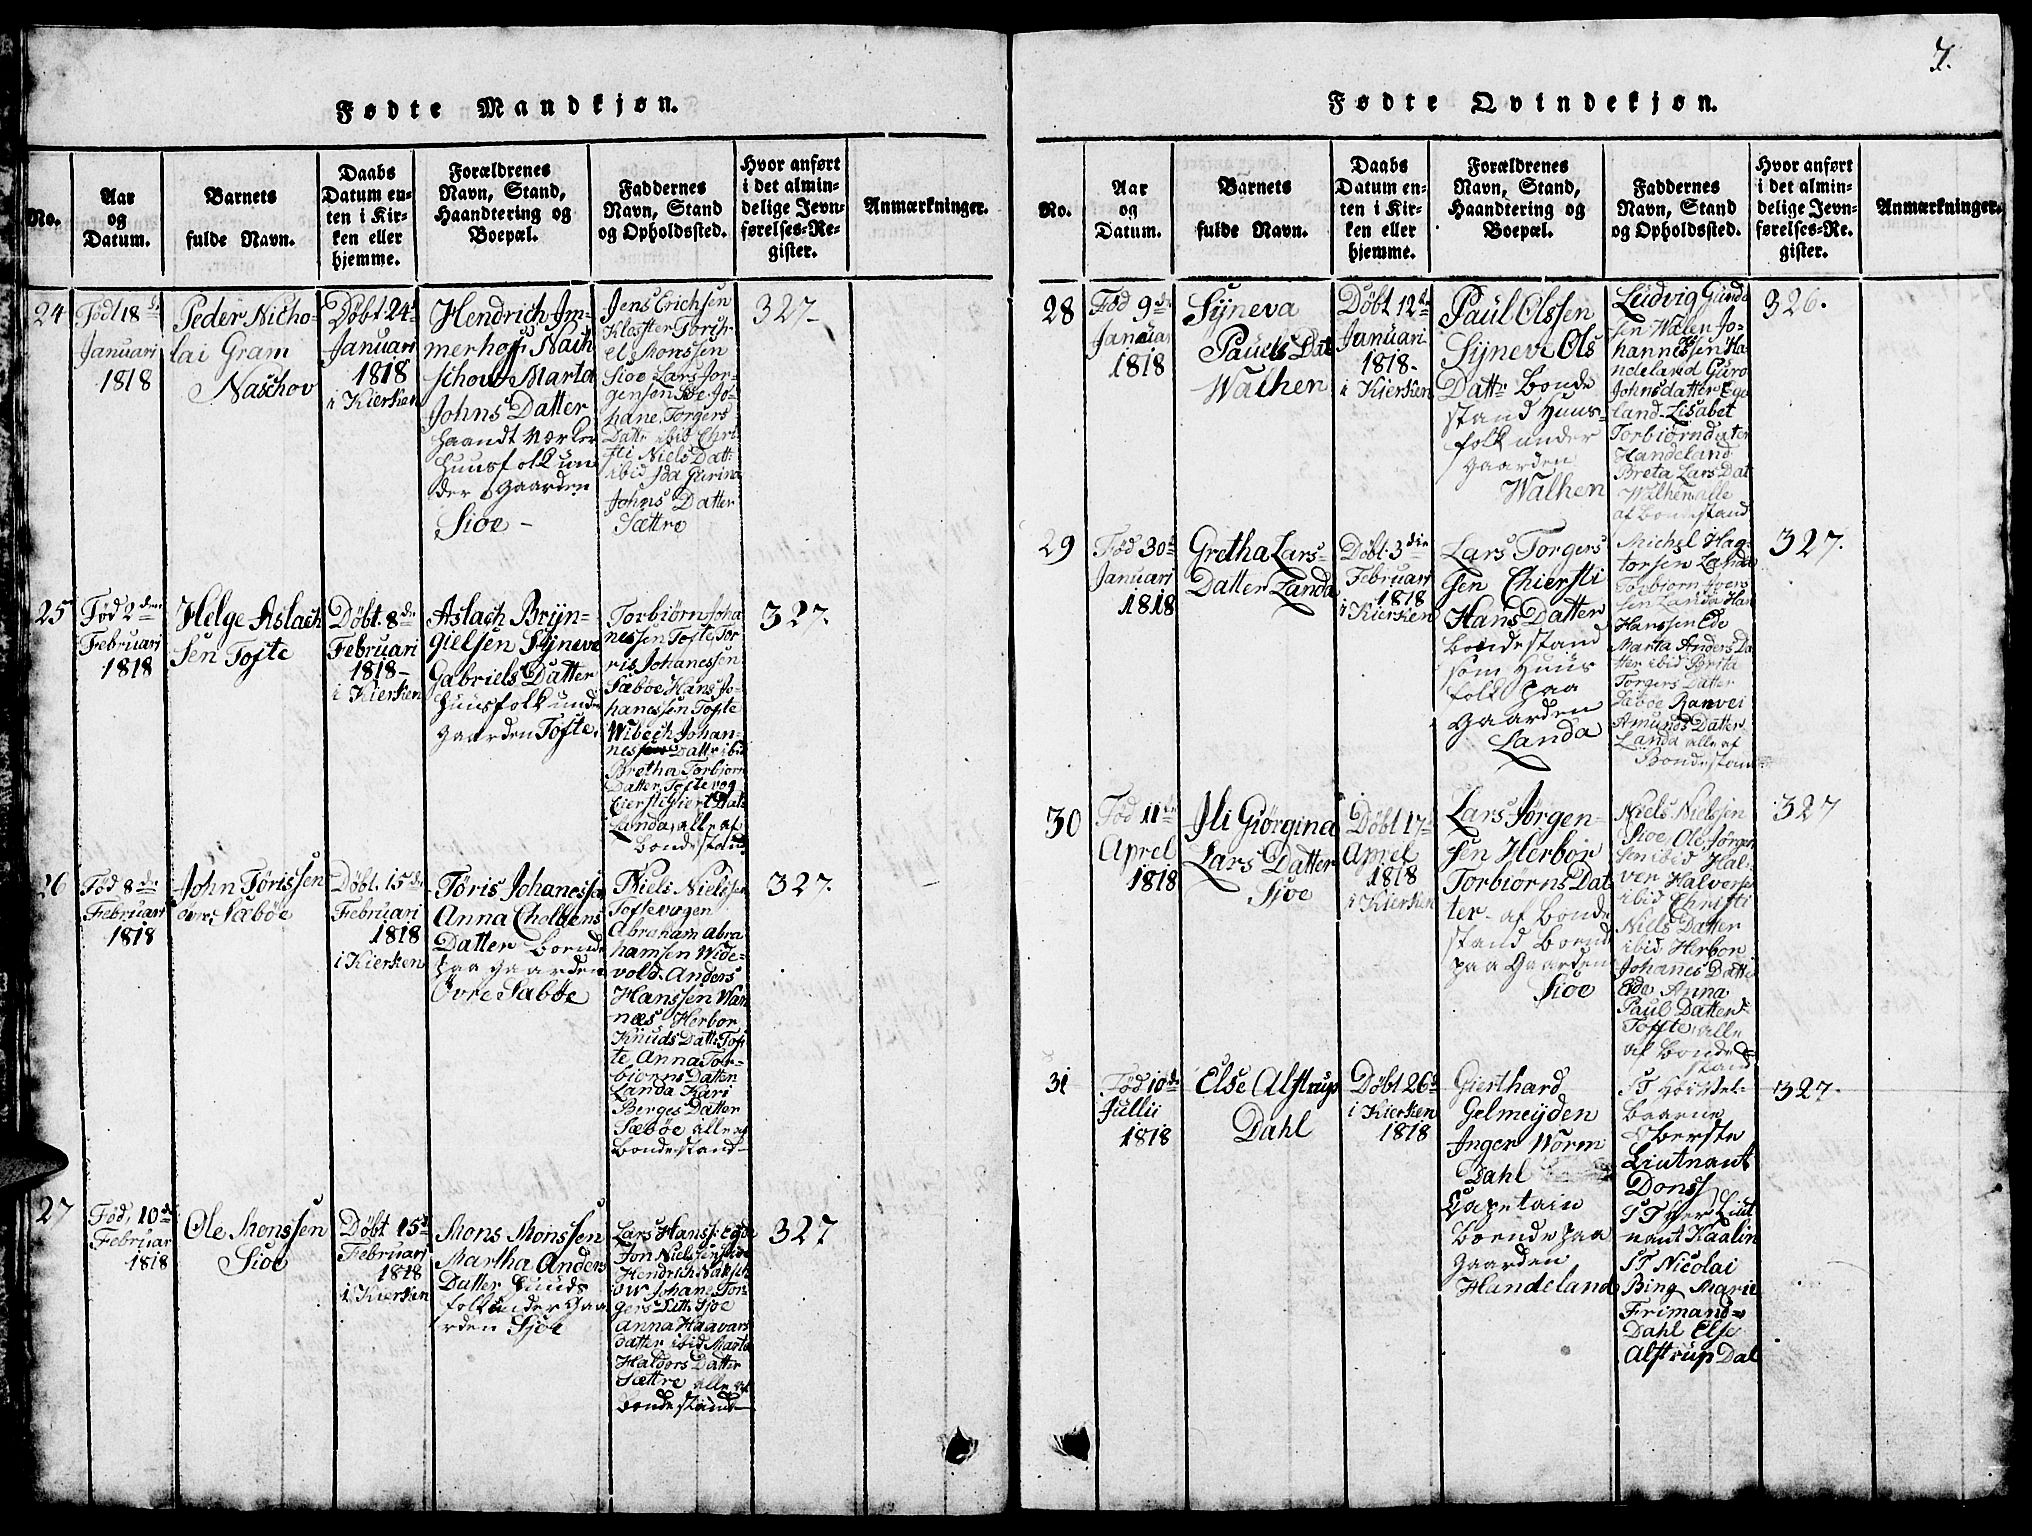 7.
Fødte Mandkjøn.
No.
Aar
og
Datum.
Barnets
fulde Navn.
Daabs
Datum en-
ten i Kir-
ken eller
hjemme.
Forældrenes
Navn, Stand,
Haandtering og
Boepæl.
Faddernes
Navn, Stand
og Opholdssted.
Hvor anført
i det almin-
delige Jevn-
førelses-Re-
gister.
Anmærkninger.
24
Født 18de
Januari
1818
Peder Nicho-
lai Gram
Naschov
Døbt 24de
Januari
1818
i Kierken
Hendrich Im-
merhoff Nach
schow Marta
Johns Datter
haandt værker
huusfolk un
der Gaarden
Sioe -
Jens Erichsen
Kloster Torch
el Monssen
Sioe Lars Jor-
gensen Sioe Jo-
hane Torgers
Datte ibid Chri
sti Niels Datt
ibid Ida Gurina
Johns Datter
Sættre
327-
25
Fød 2den
Februari
1818
Helge Aslach
sen Tofte
Døbt 8de
Februari
1818-
i Kierken
Aslach Bryn-
gielsen Syneve
Gabriels Datter
huusfolk unde
Gaarden Tofte.
Torbiørn Joha
nessen Tofte, Tor
ris Johanessen
Sæbøe Hans Jo-
hanessen Tofte
Wibech Johan-
nes Datte ibid
Bretha Torbiørn
Datter Toftevog
Ciersti Siert Dat
Landa, alle af
bondestand
327.
26
Fød 8de
Februari
1818
John Tørissen
øvre Sæbøe
Døbt 15de
Februari
1818
i Kierken
Tøris Johanessen
Anna Cholbens
Datter boende
paa Gaarden
Øvre Sæbøe
Niels Nielssen
Toftevogen
Abraham Abra
hamsen Wide-
vold. Anders
Hanssen War
næs Herbor
Knuds Datt Tof
te, Anna Tor-
biørns Datter
Landa Kari
Berges Datter
Sæbøe alle af
Bondestand-
327.
27
Fød 10de
Februar
1818
Ole Monssen
Sioe
Døbt 15de
Februari
1818
i Kierken
Mons Monssen
Martha Anders
Datter huuds
folk under Gaa
rden Sjoe
Lars Hanss: Egde
Jon Nielssen Sioe
Hendrich Nasch
ow Johane Tor
gers Dtt. Sjoe
Anna Haavars
Datter ibid Marta
Haldors Datter
Sættre alle af
bondestand
327
Fødte Qvindekjøn.
No.
Aar
og
Datum.
Barnets
fulde Navn.
Daabs
Datum en-
ten i Kir-
ken eller
hjemme.
Forældrenes
Navn, Stand,
Haandtering og
Boepæl.
Faddernes
Navn, Stand
og Opholdssted.
Hvor anført
i det almin-
delige Jevn-
førelses-Re-
gister.
Anmærkninger.
28
Fød 9de
Januar
1818
Syneva
Pauels Dat
Walhen
Døbt 12te
Januari
1818-
i Kierken
Paul Olssen
Syneve Ols
Datte bonde
stand huus-
folk under
Gaarden
Walhen
Ludvig Gunda
sen Walen Jo-
hannessen Ha-
ndeland Guro
Johnsdatter Ege
land-Lisabet
Torbiørndater
Handeland
Breta Lars Dat
Walhen alle
af bondestand
326.
29
Fød 30te
Januari
1818
Gretha Lars-
Datter Landa
Døbt 3die
Februari
1818
i Kierken
Lars Torgers
sen Chiersti
Hans Datter
bondestand
som huus
folk paa
Gaarden
Landa
Michel Hag-
torsen Landa
Torbiørn Ivers
sen Landa Hans
Hanssen Ede
Marta Anders Da
tter ibid Brita
Torgers Datter
Sæbøe Ranvei
Amunds Datter
Landa alle af
Bondestand
327.
30
Fød 11te
Aprel
1818
Ili Giørgina
Lars Datter
Sioe
Døbt 17de
Aprel
1818
i Kierken
Lars Jørgen-
sen Herbor
Torbiørns Dat
ter- af bonde
stand boend
paa Gaarden
Sioe
Niels Nielssen
Sioe, Ole Jørgen
sen ibid Hal-
ver Halversen
ibid Christi
Niels Datter
ibid Herbor
Johanes Datte
Ede Anna
Paul Datter
Toffte, alle
af bonde
stand
327
31
Fød 10de
Jullii
1818
Else Alstrup
Dahl
Døbt 26de
i Kierken
1818
Gierthard
Gelmeyden
Inger Worm
Dahl
Capetain
boende paa
Gaarden
Handeland
ST Høivel-
baarne
Oberste
Liutnant
Donss
ST Her Liut
nant Kaalin
ST Nicolai
Bing Marie
Frimand
Dahl Else
Alstrup Dal
327.